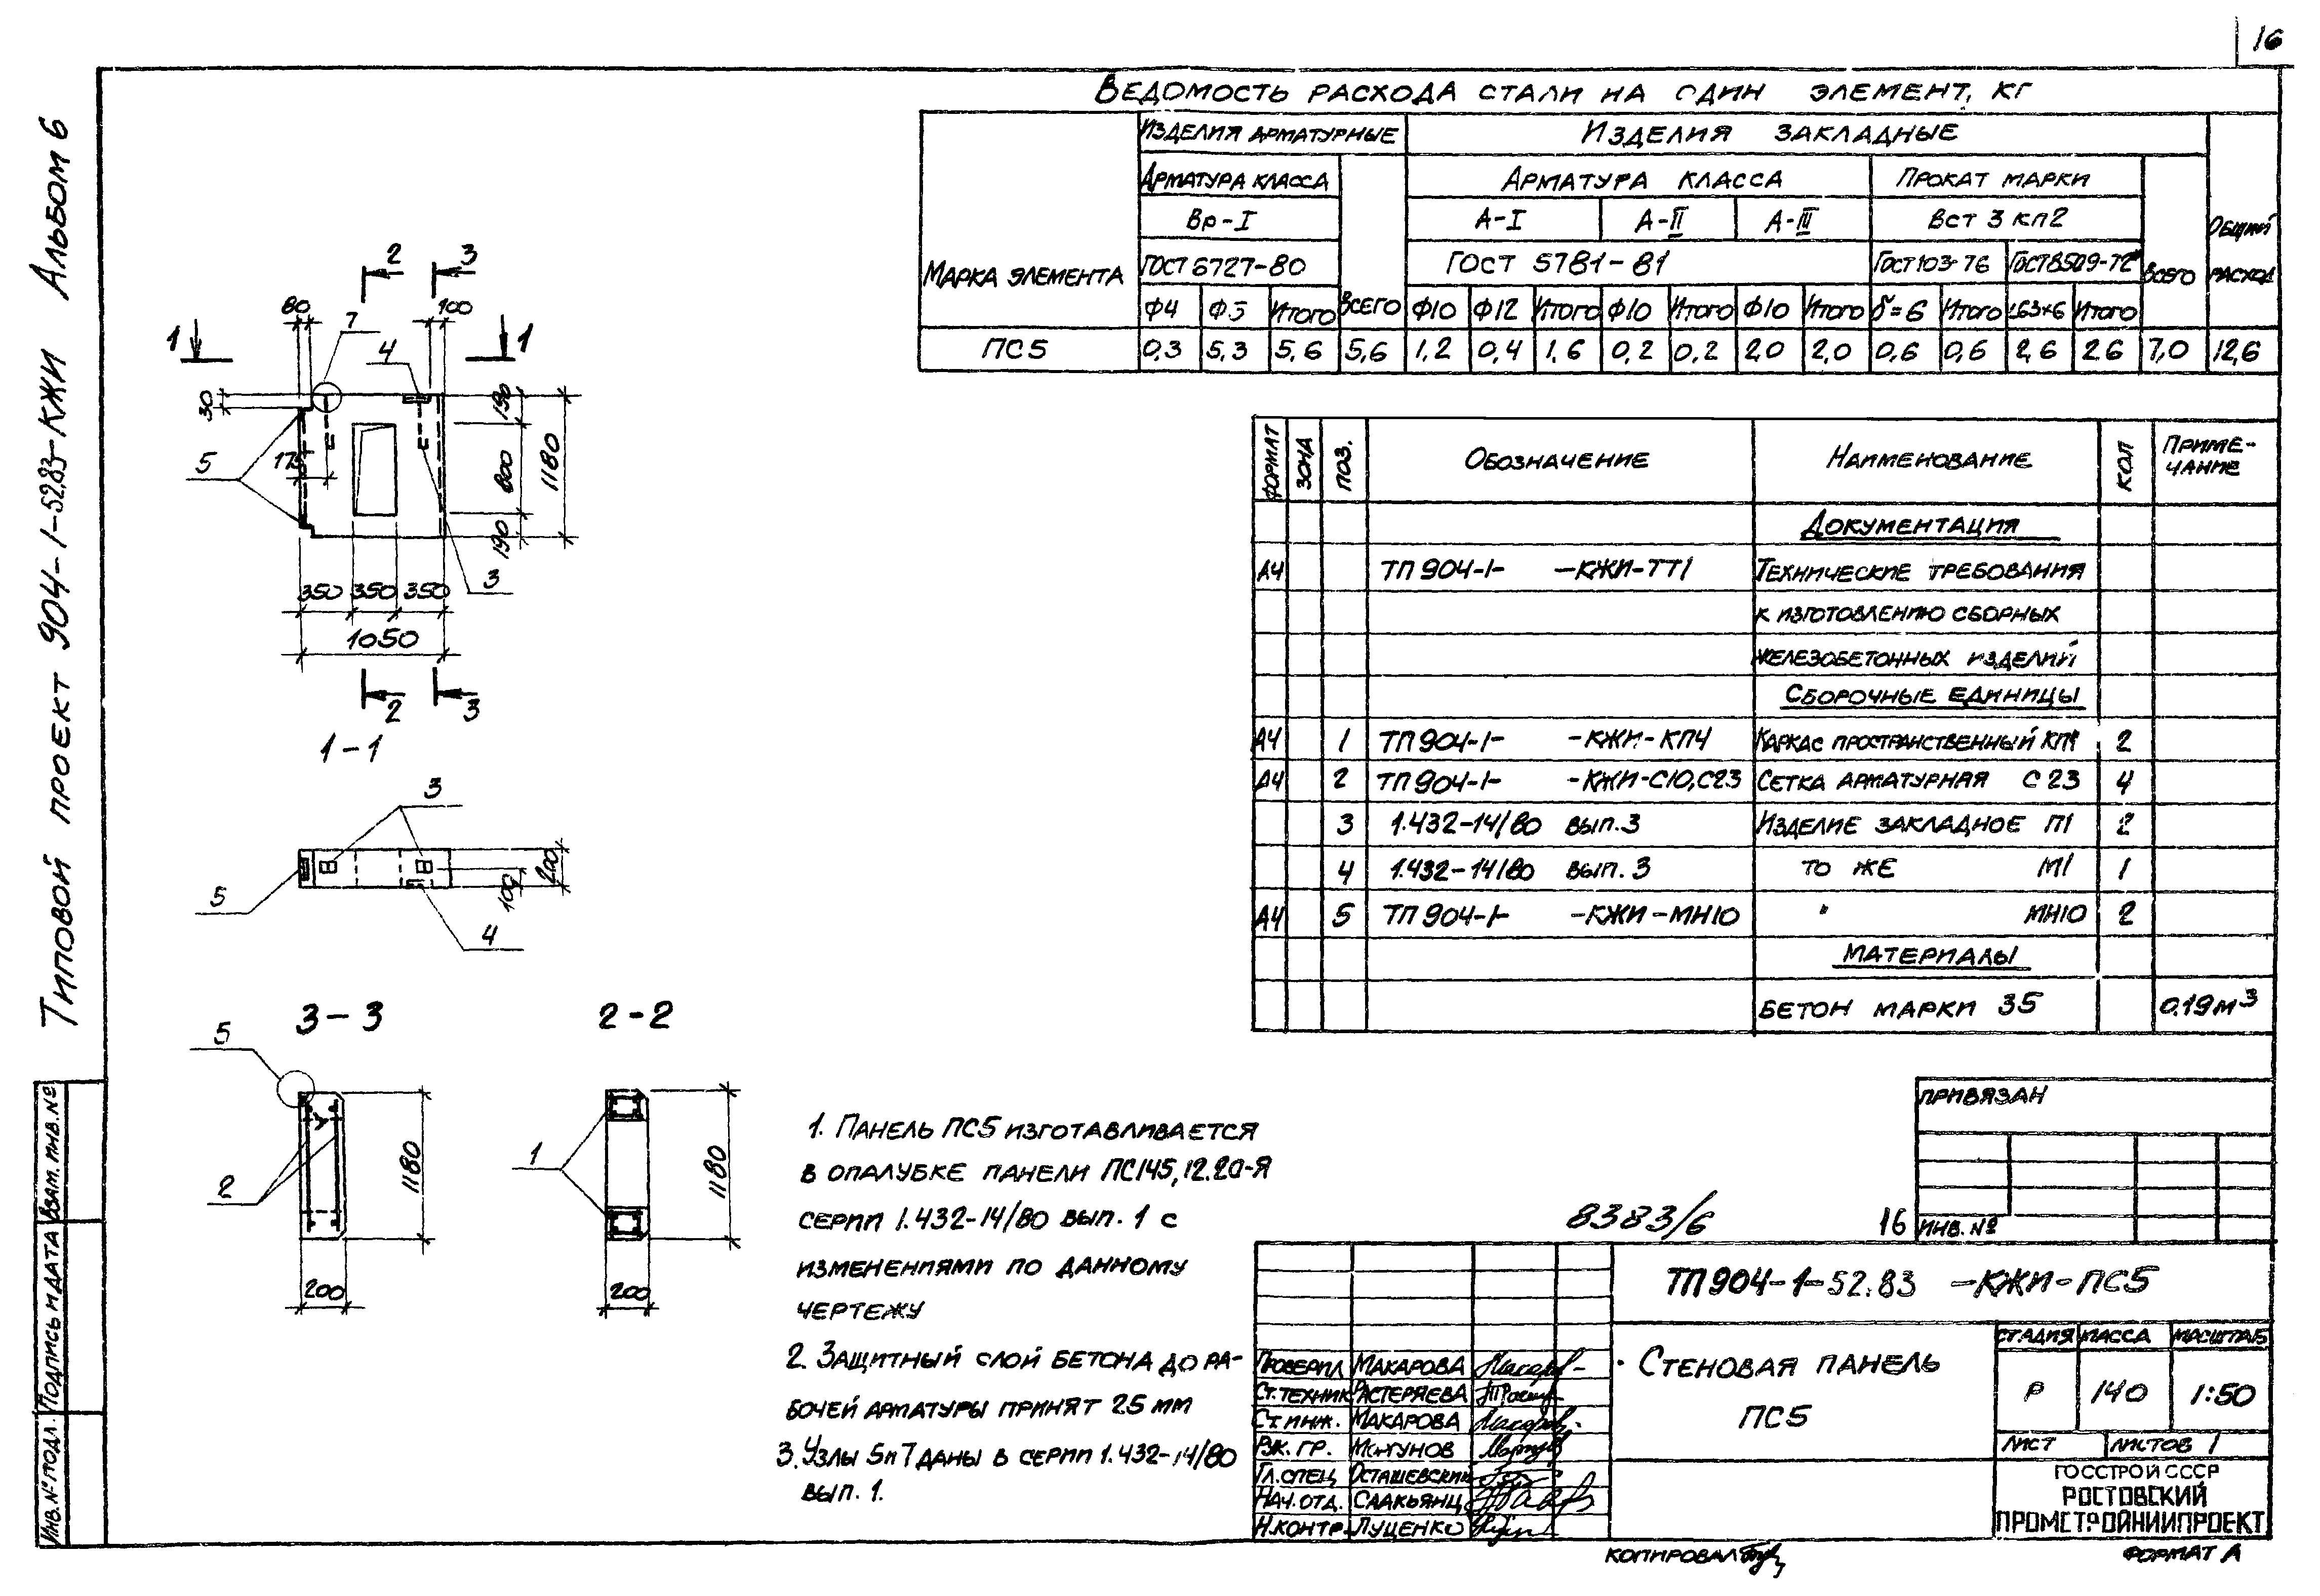 16
Типовой проект 904-1-52.83-КЖИ Альбом 6
Ведомость расхода стали на один элемент, кг
Марка элемента
Изделия арматурные
Изделия закладные
Общий расход
Арматура класса
Всего
Арматура класса
Прокат марки
Всего
Вр-I
А-I
А-II
А-III
Вст 3 кп2
ГОСТ 6727-80
ГОСТ 5781-81
ГОСТ 103-76
ГОСТ 8509-72*
Ф4 Ф5 Итого Ф10 Ф12 Итого Ф10 Итого Ф10 Итого δ=6 Итого L63×6 Итого
ПС5 0,3 5,3 5,6 5,6 1,2 0,4 1,6 0,2 0,2 2,0 2,0 0,6 0,6 2,6 2,6 7,0 12,6
2 3
80 7 100
1 4 1
30
190
5 175 800 1180
190
3
350 350 350
1050
2 3
1-1
3
5 200
100
4
3-3 2-2
5
2 1180
200
1 1180
200
Формат Зона Поз. Обозначение Наименование Кол Приме-
чание
Документация
А4 ТП 904-1- -КЖИ-ТТ1 Технические требования
к изготовлению сборных
железобетонных изделий
Сборочные единицы
А4 1 ТП 904-1- -КЖИ-КП4 Каркас пространственный КП4 2
А4 2 ТП 904-1- -КЖИ-С10,С23 Сетка арматурная С23 4
3 1.432-14/80 вып.3 Изделие закладное П1 2
4 1.432-14/80 вып.3 То же М1 1
А4 5 ТП 904-1- -КЖИ-МН10 " МН10 2
Материалы
Бетон марки 35 0.19м³
1. Панель ПС5 изготавливается
в опалубке панели ПС145,12.20-Я
серии 1.432-14/80 вып. 1 с
изменениями по данному
чертежу
2. Защитный слой бетона до ра-
бочей арматуры принят 25 мм
3. Узлы 5 и 7 даны в серии 1.432-14/80
вып. 1.
Привязан
Инв. №
8383/6 16
ТП 904-1-52.83 -КЖИ-ПС5
Проверил Макарова
Ст.техник Растеряева
Ст.инж. Макарова
Рук. гр.
Гл.спец Осташевский
Нач.отд. Саакьянц
Н.контр. Луценко
Стеновая панель
ПС5
Стадия Масса Масштаб
Р 140 1:50
Лист Листов 1
ГОССТРОЙ СССР
РОСТОВСКИЙ
ПРОМСТРОЙНИИПРОЕКТ
Копировал
Формат А
Взам. инв. №
Подпись и дата
Инв. № подл.